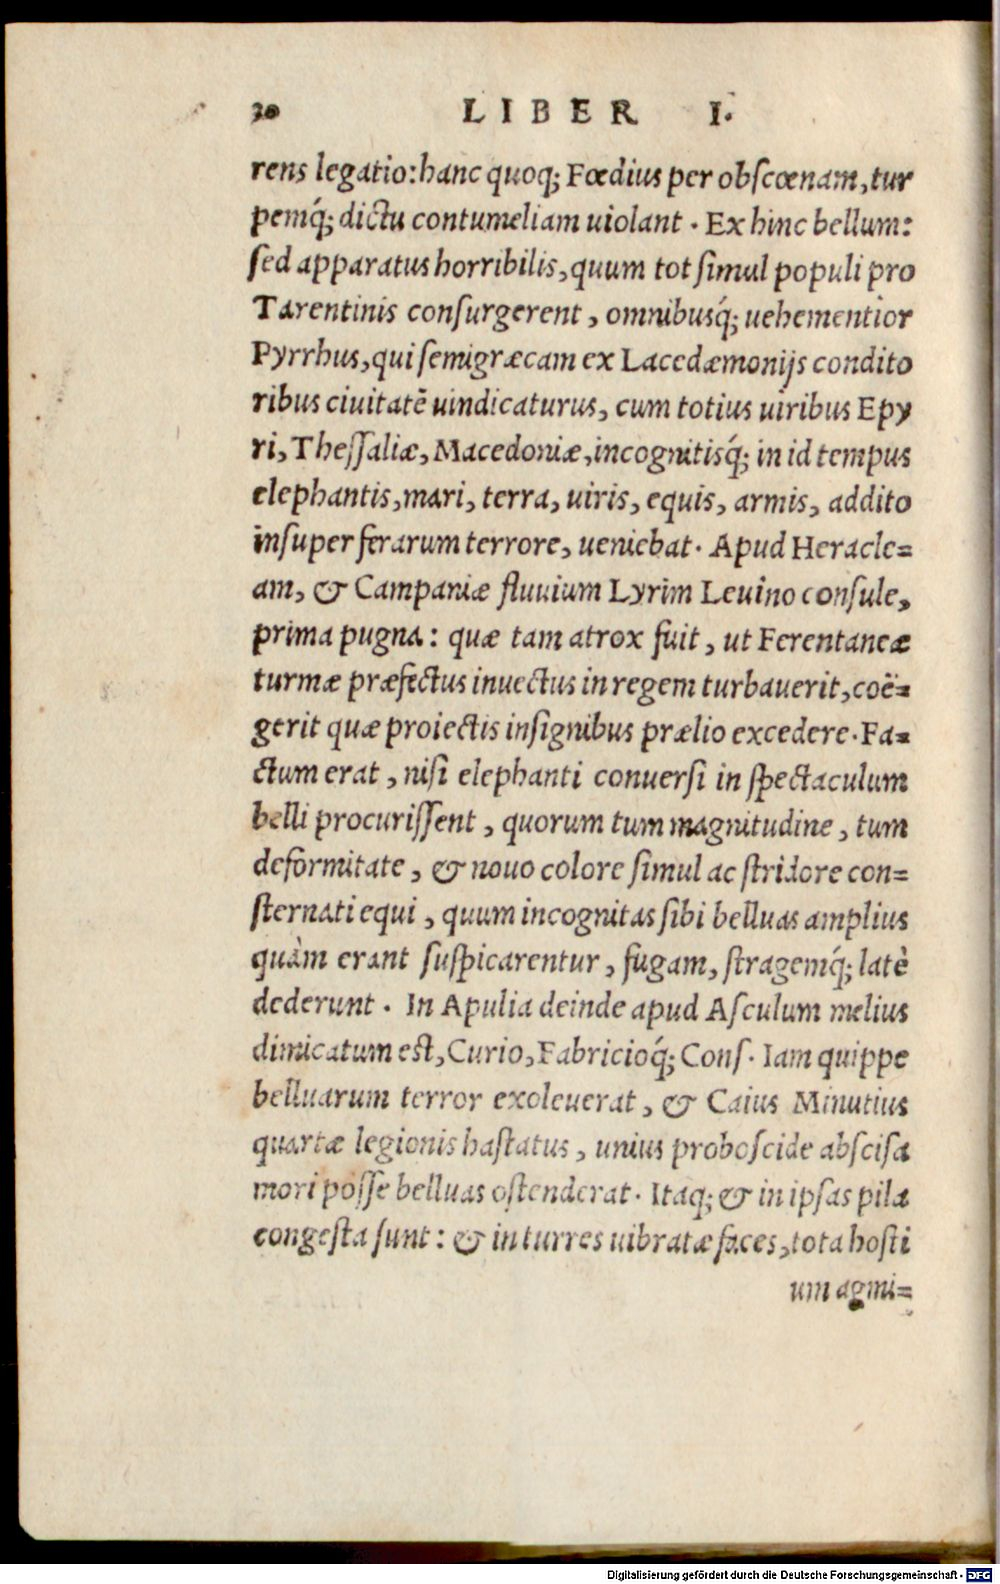 30 LIBER I.
rens legatio: hanc quoq; Fœdius per obscœnam, tur
pemq́; dictu contumeliam uiolant. Ex hinc bellum:
sed apparatus horribilis, quum tot simul populi pro
Tarentinis consurgerent, omnibusq́; uehementior
Pyrrhus, qui semigræcam ex Lacedæmonijs condito
ribus ciuitatē uindicaturus, cum totius uiribus Epy
ri, Thessaliæ, Macedoniæ, incognitisq́; in id tempus
elephantis, mari, terra, uiris, equis, armis, addito
insuper ferarum terrore, ueniebat. Apud Heracle=
am, & Campaniæ fluuium Lyrim Leuino consule,
prima pugna: quæ tam atrox fuit, ut Ferentaneæ
turmæ præfectus inuectus in regem turbauerit, coë=
gerit quæ proiectis insignibus prælio excedere. Fa=
ctum erat, nisi elephanti conuersi in spectaculum
belli procurissent, quorum tum magnitudine, tum
deformitate, & nouo colore simul ac stridore con=
sternati equi, quum incognitas sibi belluas amplius
quàm erant suspicarentur, fugam, stragemq́; latè
dederunt. In Apulia deinde apud Asculum melius
dimicatum est, Curio, Fabricioq́; Cons. Iam quippe
belluarum terror exoleuerat, & Caius Minutius
quartæ legionis hastatus, unius proboscide abscisa
mori posse belluas ostenderat. Itaq; & in ipsas pila
congesta sunt: & in turres uibratæ faces, tota hosti
um agmi=
Digitalisierung gefördert durch die Deutsche Forschungsgemeinschaft - DFG